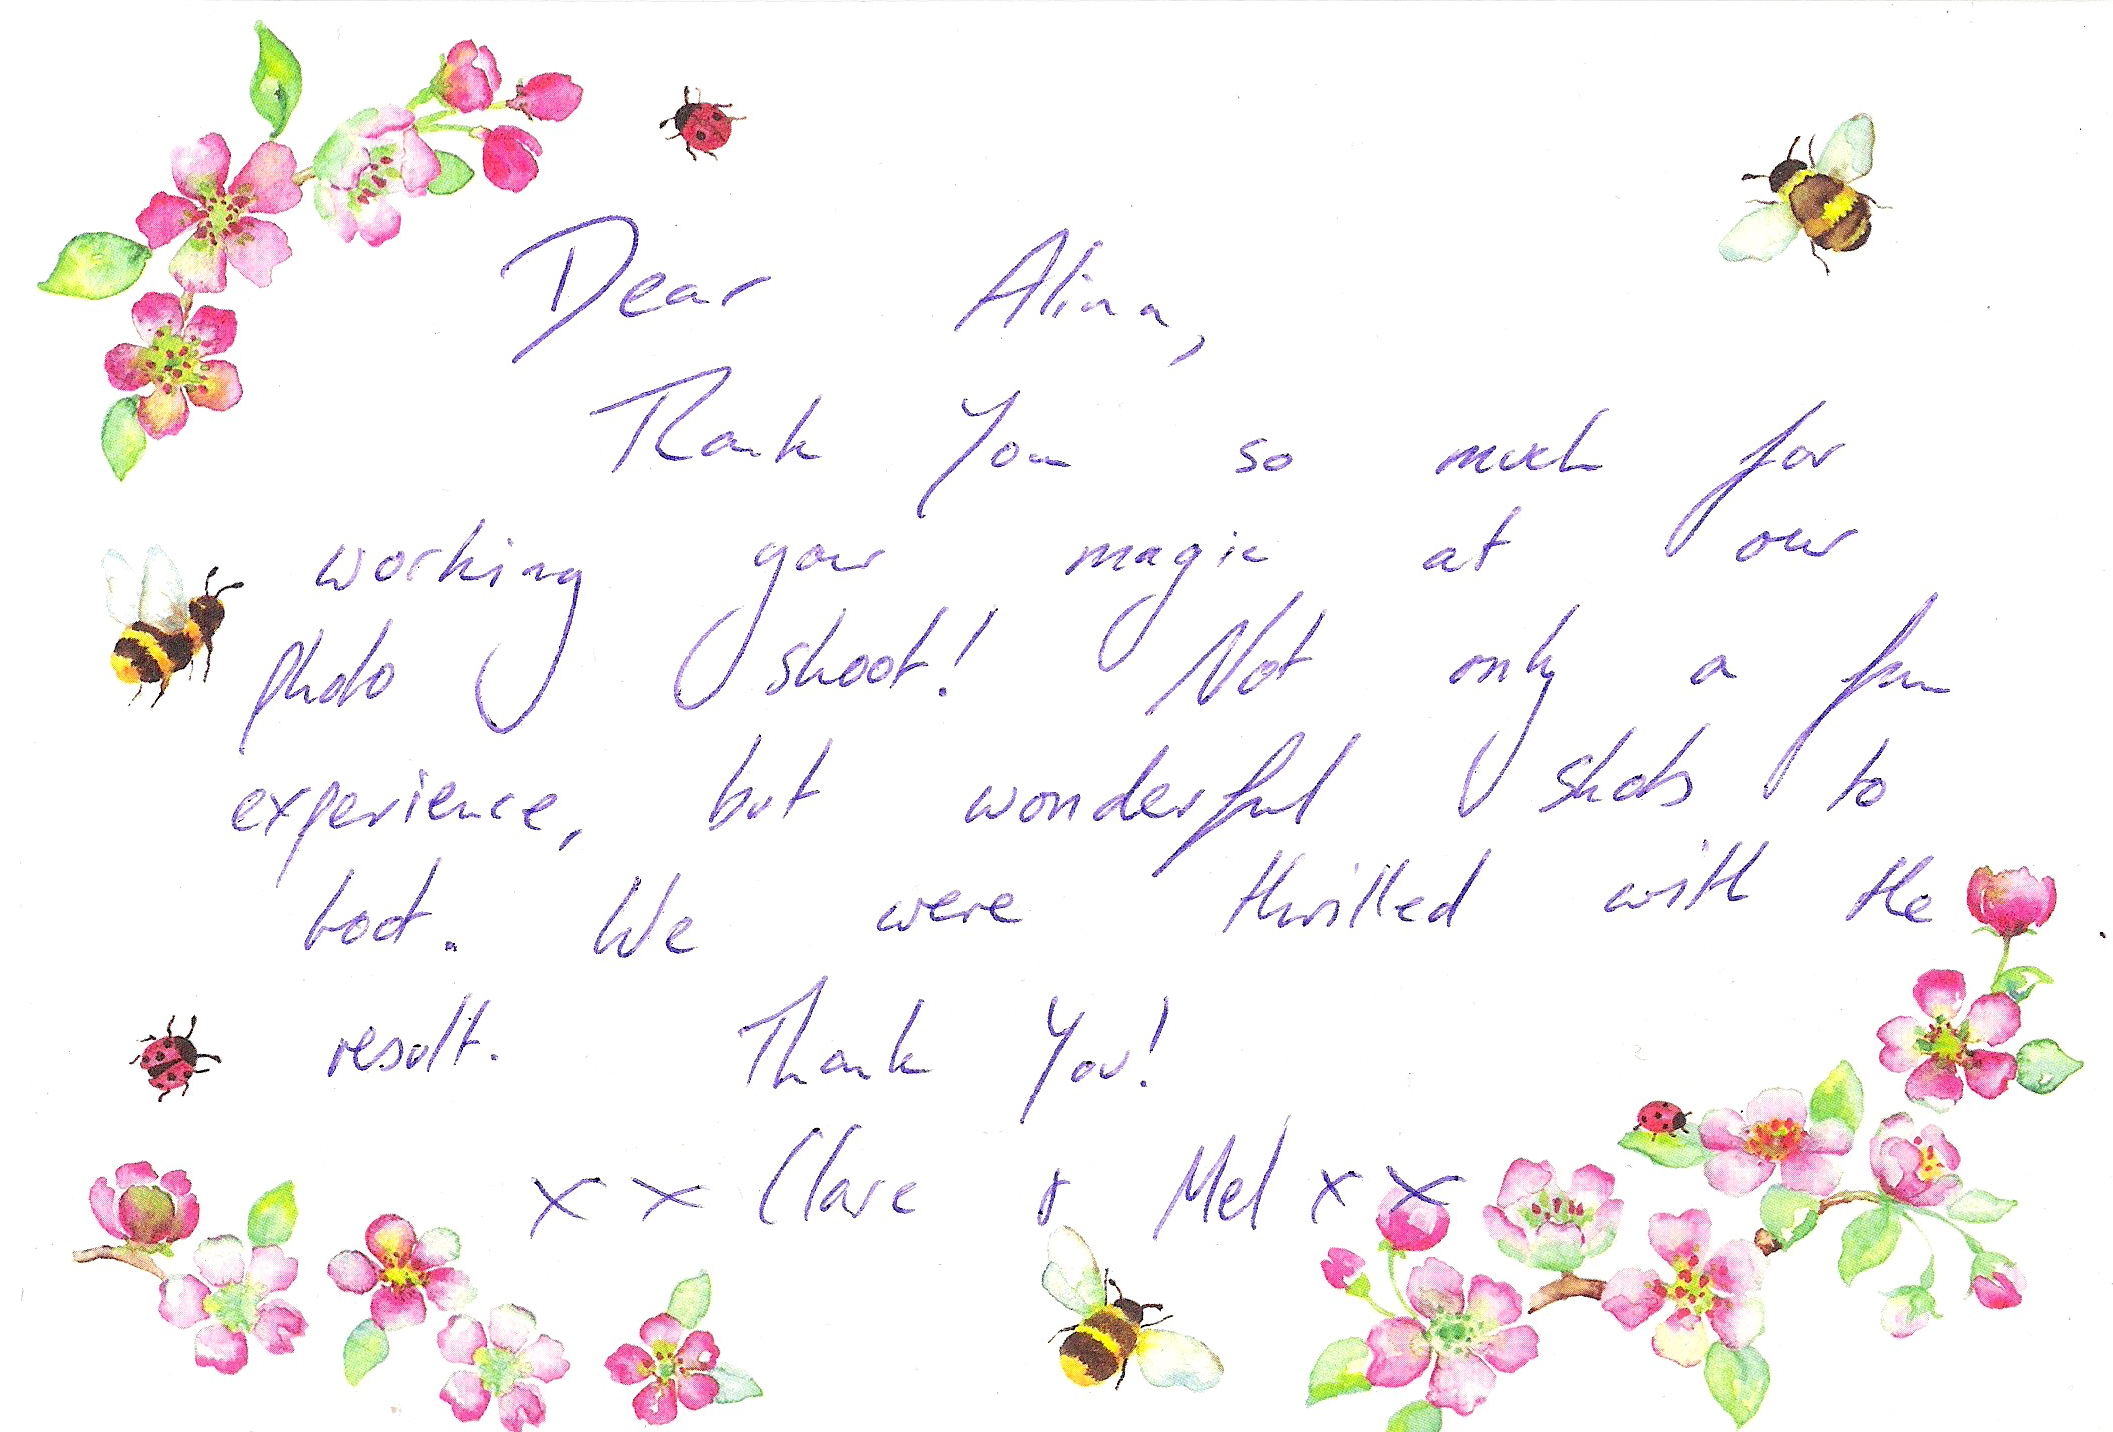 Dear Alina,
Thank You so much for
working your magic at our
photo shoot! Not only a fun
experience, but wonderful shots to
boot. We were thrilled with the
result. Thank You!
x x Clare & Mel x x